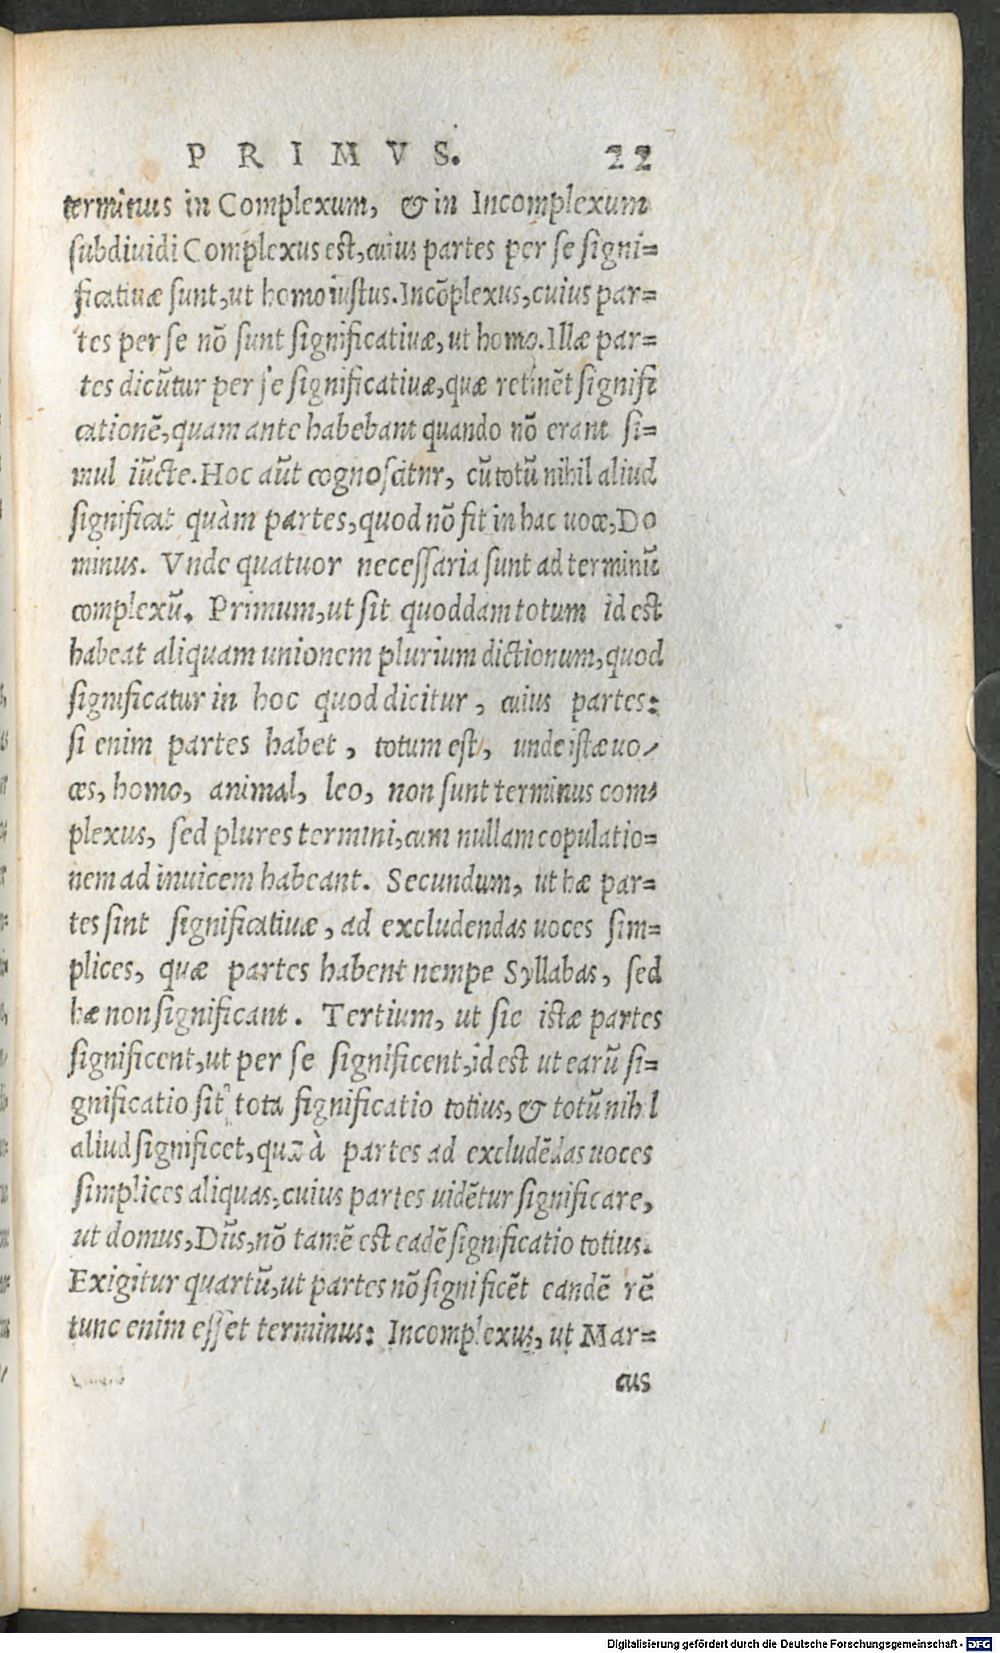 PRIMVS. 22
terminus in Complexum, & in Incomplexum
ſubdiuidi Complexus est, cuius partes per ſe ſigni=
ficatiuæ ſunt, ut homo iustus. Incõplexus, cuius par=
tes per ſe nõ ſunt ſignificatiuæ, ut homo. Illæ par=
tes dicũtur per ſe ſignificatiuæ, quæ retinẽt ſignifi
cationẽ, quam ante habebant quando nõ erant ſi=
mul iũcte. Hoc aũt cognoſcitur, cũ totũ nihil aliud
ſignificat quàm partes, quod nõ fit in hac uoce, Do
minus. Vnde quatuor neceſſaria ſunt ad terminũ
complexũ. Primum, ut ſit quoddam totum id est
habeat aliquam unionem plurium dictionum, quod
ſignificatur in hoc quod dicitur, cuius partes:
ſi enim partes habet, totum est, unde istæ uo-
ces, homo, animal, leo, non ſunt terminus com=
plexus, ſed plures termini, cum nullam copulatio=
nem ad inuicem habeant. Secundum, ut hæ par=
tes ſint ſignificatiuæ, ad excludendas uoces ſim=
plices, quæ partes habent nempe Syllabas, ſed
hæ non ſignificant. Tertium, ut ſic istæ partes
ſignificent, ut per ſe ſignificent, id est ut earũ ſi=
gnificatio ſit tota ſignificatio totius, & totũ nihil
aliud ſignificet, quā partes ad excludẽdas uoces
ſimplices aliquas, cuius partes uidẽtur ſignificare,
ut domus, Dũs, nõ tamẽ est eadẽ ſignificatio totius.
Exigitur quartũ, ut partes nõ ſignificẽt eandẽ rẽ
tunc enim eſſet terminus: Incomplexus, ut Mar=
cus
Digitalisierung gefördert durch die Deutsche Forschungsgemeinschaft - DFG